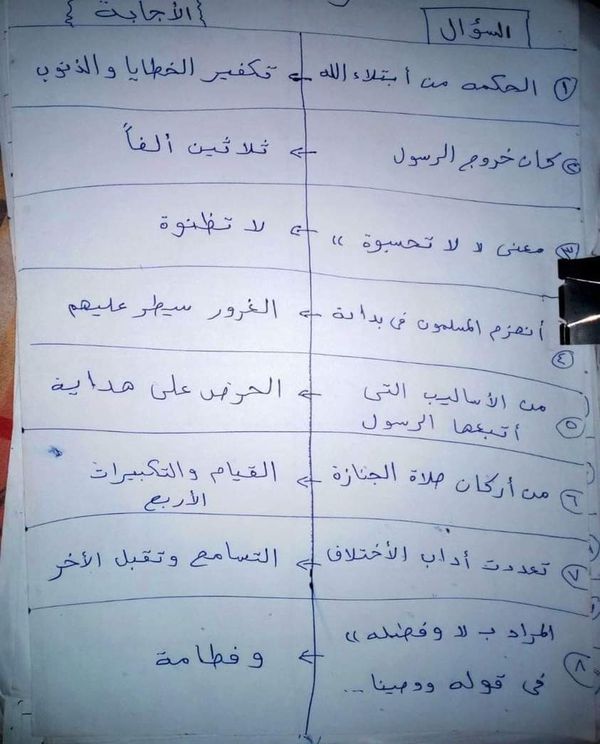 السؤال
{الأجابة}
١ الحكمه من أبتلاء الله ← تكفير الخطايا والذنوب
٢ كان خروج الرسول ← ثلاثين ألفاً
٣ معنى « لا تحسبوة » ← لا تظنوة
٤ أنهزم المسلمون فى بداية ← الغرور سيطر عليهم
٥ من الأساليب التى ← الحرص على هداية
أتبعها الرسول
٦ من أركان صلاة الجنازة ← القيام والتكبيرات
الأربع
٧ تعددت أداب الأختلاف ← التسامح وتقبل الأخر
٨ المراد بـ « وفصله »
فى قوله ووصينا... ← وفطامة